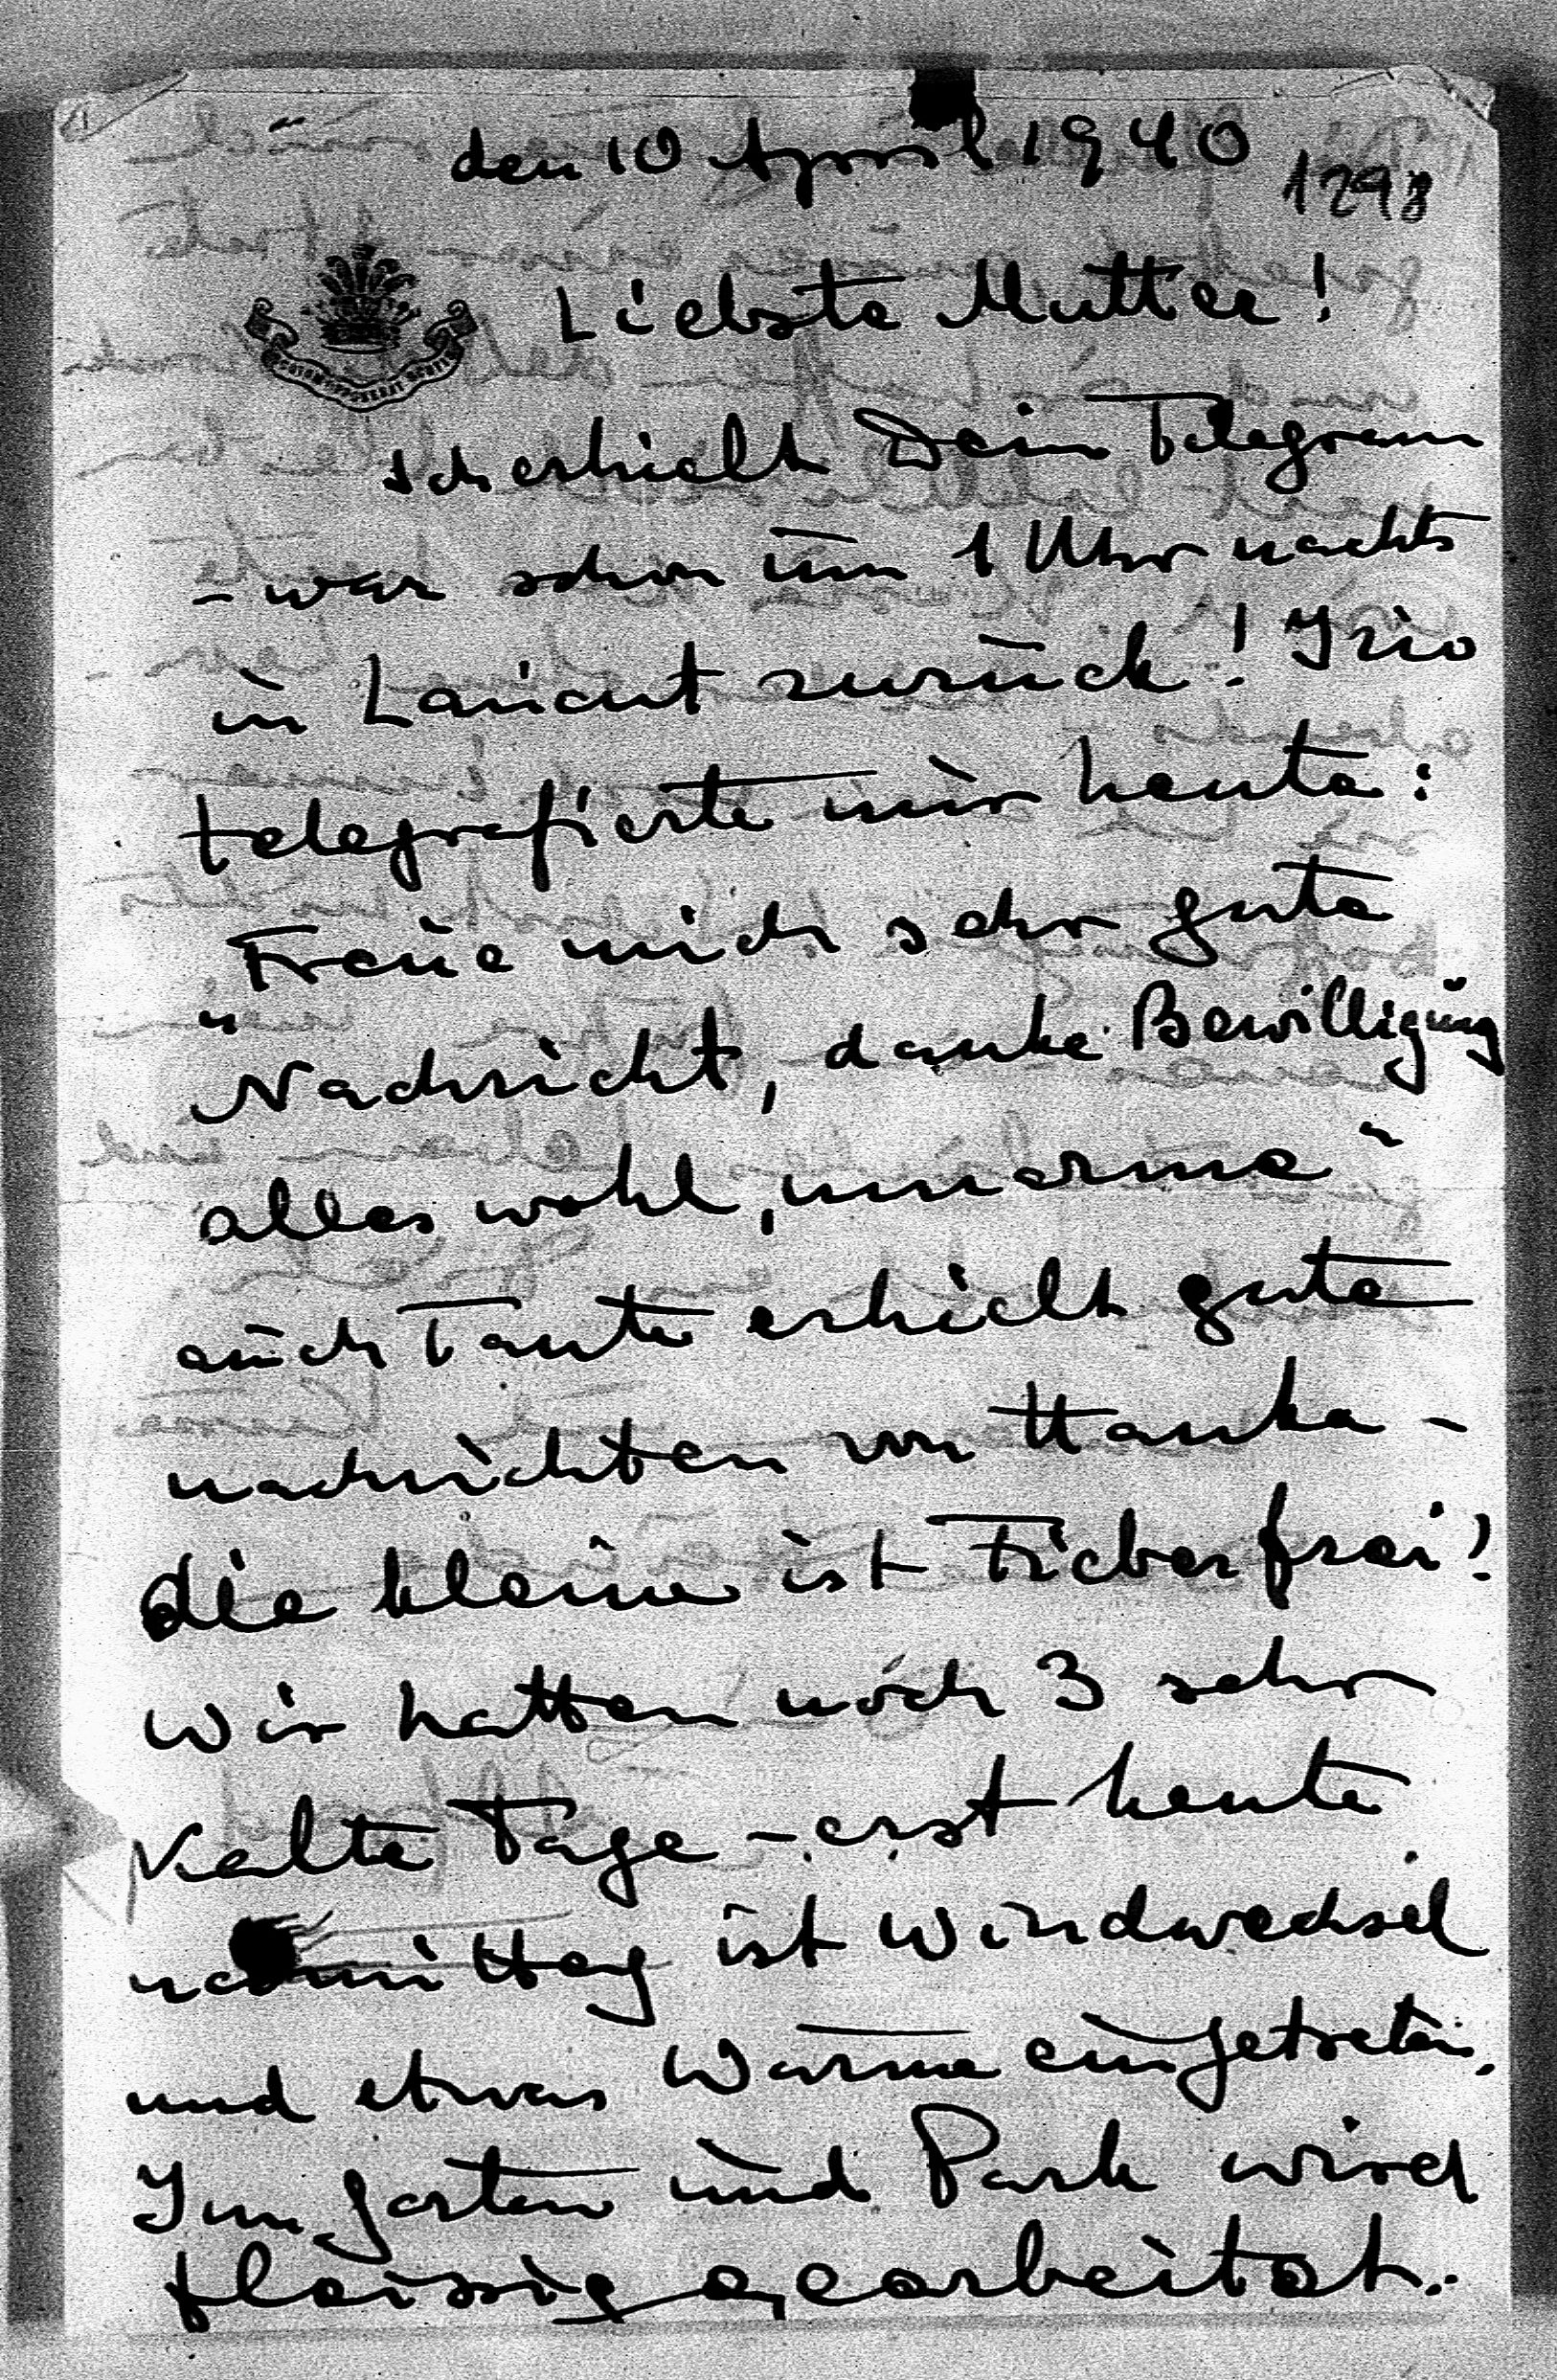 den 10 April 1940
1298
Liebste Mutter!
Ich erhielt Dein Telegram
- war schon um 1 Uhr nachts
in Lancut zurück! Irio
telegrafierte mir heute:
"Freue mich sehr gute
Nachricht, danke Bewilligung
alles wohl, umarme"
auch Tante erhielt gute
nachrichten von Hanka -
die kleine ist Fieberfrei!
Wir hatten noch 3 sehr
Kalte Tage - erst heute
nachmittag ist Windwechsel
und etwas Wärme eingetreten,
Im Garten und Park wird
fleissig gearbeitet.